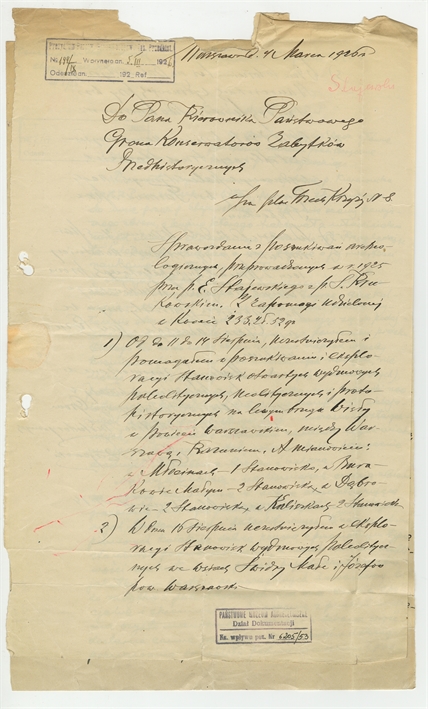 № 198/IX Wpłynęło dn. 5 III 1926
Odesłano dn. 192 Ref.
Warszawa d. 4 Marca 1926 r
Do Pana Kierownika Państwowego
Grona Konserwatorów Zabytków
Przedhistorycznych
plac Trzech Krzyży № 8
Sprawozdanie z poszukiwań archeo-
logicznych, przeprowadzonych w r. 1925
przez p. E. Stajewskiego z p. S. Kru-
kowskim. Z zapomogi udzielonej
w kwocie 233 zł. 52 gr
1) Od do 11 do 14 Sierpnia, uczestniczyłem i
pomagałem w poszukiwaniu i eksplo-
racji Stanowisk otwartych wydmowych
paleolitycznych, neolitycznych i proto-
historycznych na lewym brzegu Wisły
w powiecie warszawskim, między War-
szawą i Kazuniem. A mianowicie:
w Młocinach 1 Stanowisko, w Bura-
kowie Małym – 2 Stanowiska, w Dąbro-
wie – 2 Stanowiska, w Kaliszkach 2 Stanowiska
2) W dniu 16 Sierpnia uczestniczyłem w eksplo-
racji Stanowisk wydmowych paleolitycz-
nych we wsiach Świdry Małe i Józefów
pow. Warszawski
Dział Dokumentacji
Ks. wpływu poz. Nr 6205/53